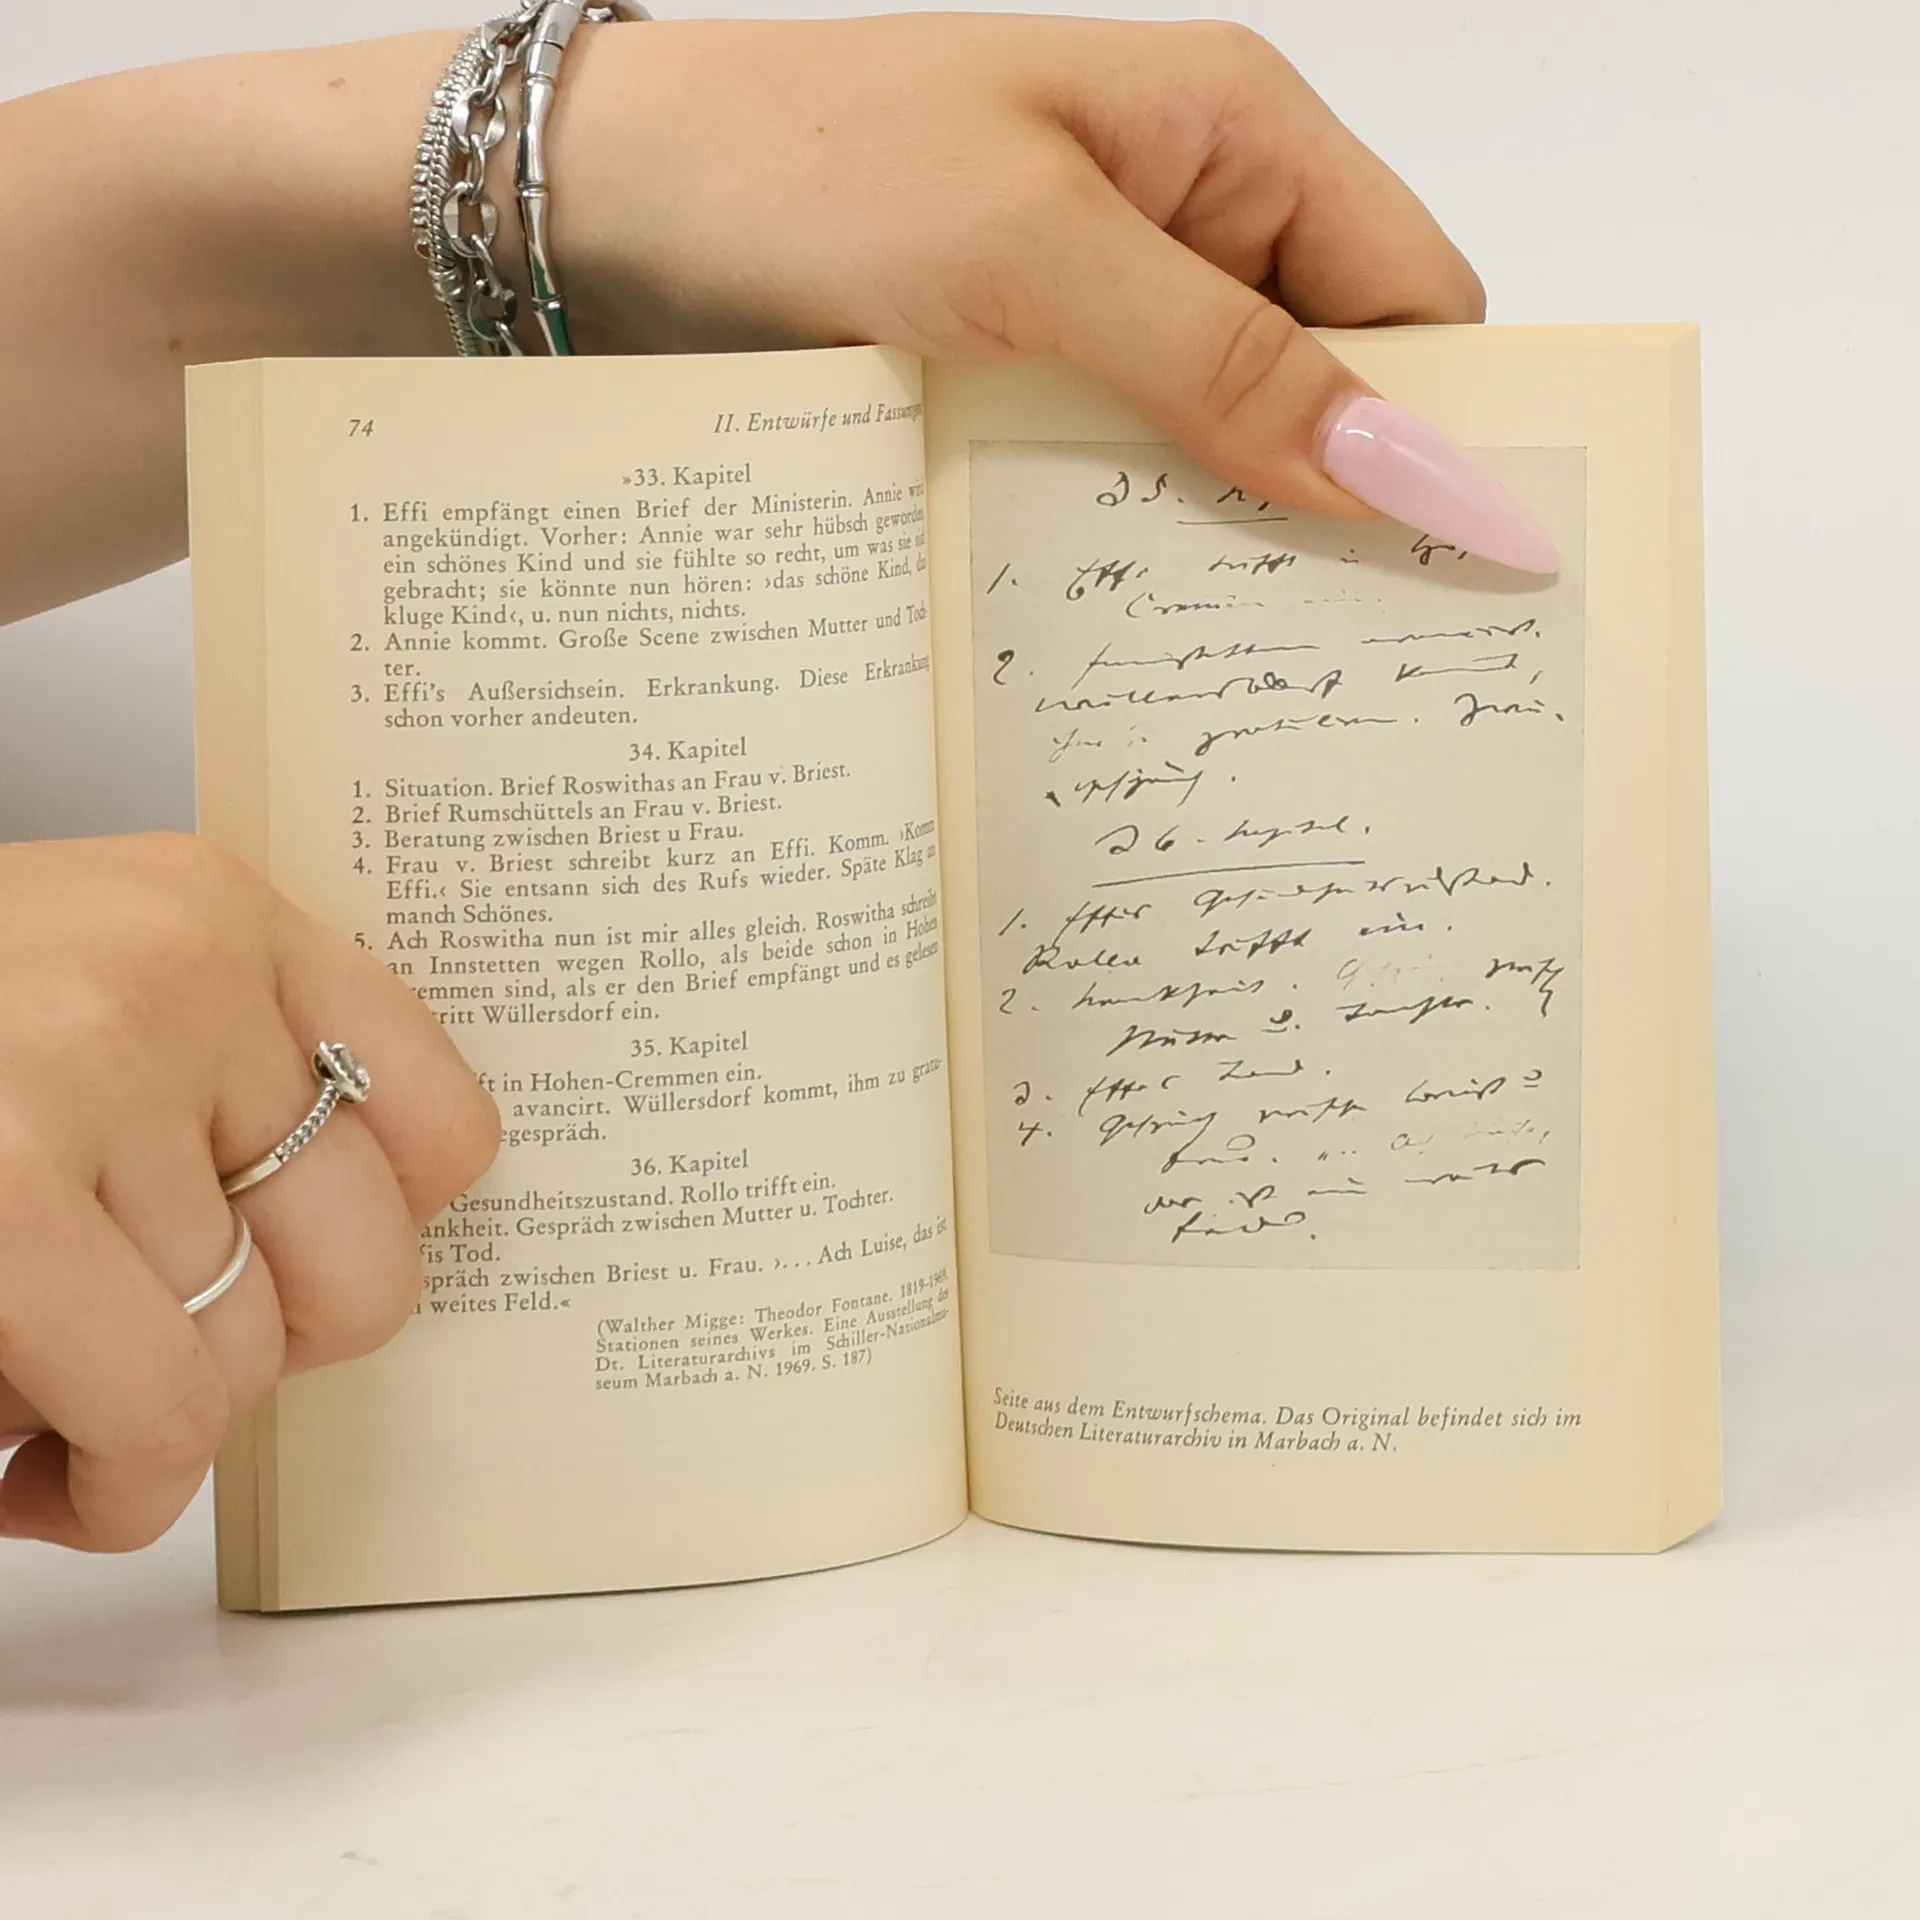 74
II. Entwürfe und Fassungen
»33. Kapitel
1. Effi empfängt einen Brief der Ministerin. Annie wird
angekündigt. Vorher: Annie war sehr hübsch geworden,
ein schönes Kind und sie fühlte so recht, um was sie sich
gebracht; sie könnte nun hören: ›das schöne Kind, das
kluge Kind‹, u. nun nichts, nichts.
2. Annie kommt. Große Scene zwischen Mutter und Toch-
ter.
3. Effi's Außersichsein. Erkrankung. Diese Erkrankung
schon vorher andeuten.
34. Kapitel
1. Situation. Brief Roswithas an Frau v. Briest.
2. Brief Rumschüttels an Frau v. Briest.
3. Beratung zwischen Briest u Frau.
4. Frau v. Briest schreibt kurz an Effi. Komm. ›Komm
Effi.‹ Sie entsann sich des Rufs wieder. Späte Klag an
manch Schönes.
5. Ach Roswitha nun ist mir alles gleich. Roswitha schreibt
an Innstetten wegen Rollo, als beide schon in Hohen
emmen sind, als er den Brief empfängt und es gelesen
tritt Wüllersdorf ein.
35. Kapitel
ft in Hohen-Cremmen ein.
avancirt. Wüllersdorf kommt, ihm zu gratu-
egespräch.
36. Kapitel
Gesundheitszustand. Rollo trifft ein.
ankheit. Gespräch zwischen Mutter u. Tochter.
is Tod.
spräch zwischen Briest u. Frau. ›... Ach Luise, das ist
weites Feld.«
(Walther Migge: Theodor Fontane. 1819-1969.
Stationen seines Werkes. Eine Ausstellung des
Dt. Literaturarchivs im Schiller-Nationalmu-
seum Marbach a. N. 1969. S. 187)
35.
1. Effi trifft in
Cremmen ein.
2. Innstetten avancirt.
Wüllersdorf kommt,
ihm zu gratuliren.
36. Kapitel.
1. Effis Gesundheitszustand.
Rollo trifft ein.
2. Krankheit. Gespräch zwisch
Mutter u. Tochter.
3. Effis Tod.
4. Gespräch zwischen Briest u
Frau. „.. Ach Luise,
das ist ein weites
Feld.
Seite aus dem Entwurfschema. Das Original befindet sich im
Deutschen Literaturarchiv in Marbach a. N.